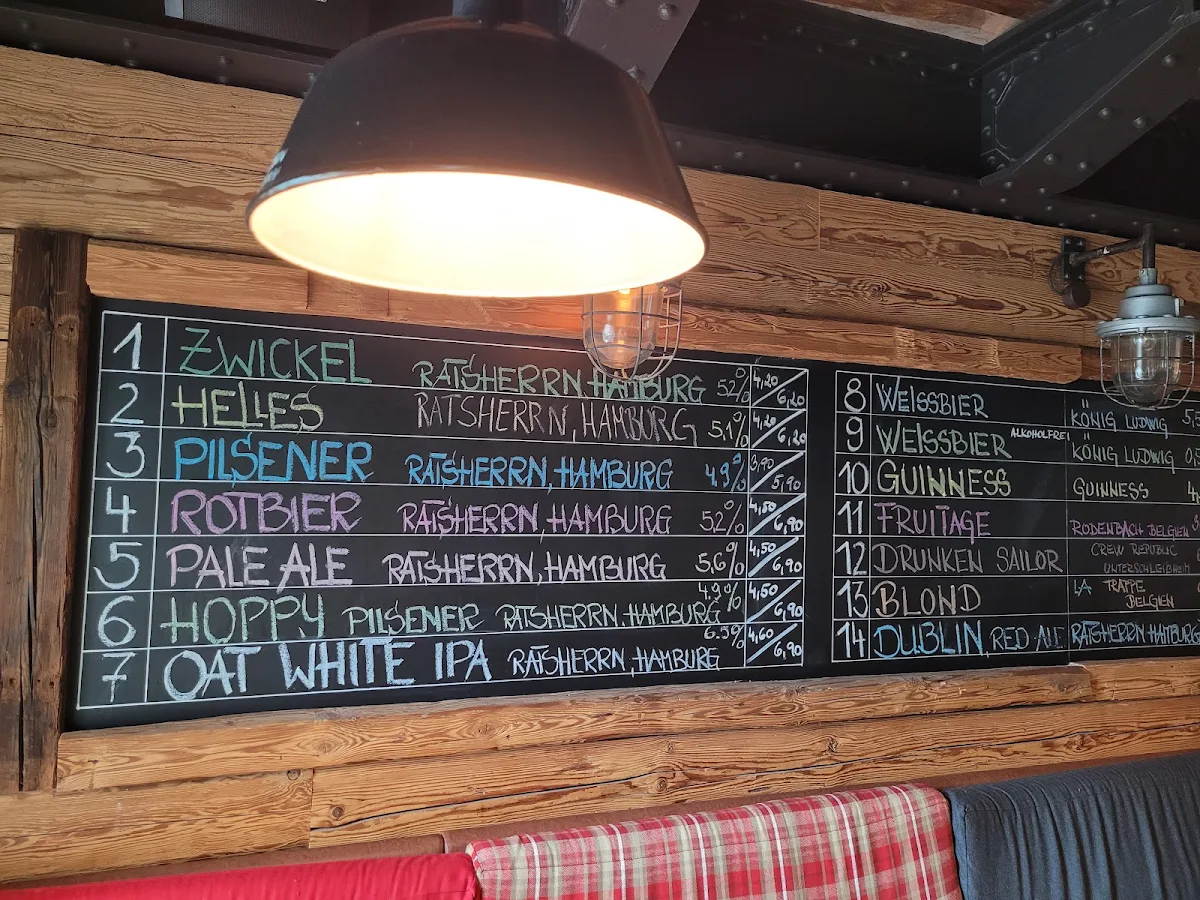 1 ZWICKEL RATSHERRN, HAMBURG 5,2% 4,20/6,20
2 HELLES RATSHERRN, HAMBURG 5,1% 4,20/6,20
3 PILSENER RATSHERRN, HAMBURG 4,9% 3,90/5,90
4 ROTBIER RATSHERRN, HAMBURG 5,2% 4,50/6,90
5 PALE ALE RATSHERRN, HAMBURG 5,6% 4,50/6,90
6 HOPPY PILSENER RATSHERRN, HAMBURG 4.9% 4,50/6,90
7 OAT WHITE IPA RATSHERRN, HAMBURG 6.5% 4,60/6,90
8 WEISSBIER KÖNIG LUDWIG
9 WEISSBIER ALKOHOLFREI KÖNIG LUDWIG
10 GUINNESS GUINNESS
11 FRUITAGE RODENBACH BELGIEN
12 DRUNKEN SAILOR CREW REPUBLIC
UNTERSCHLEIßHEIM
13 BLOND LA TRAPPE
BELGIEN
14 DUBLIN, RED ALE RATSHERRN HAMBURG